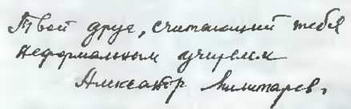 Твой друг, считающий тебя
неформальным учителем
Александр Милитарев.